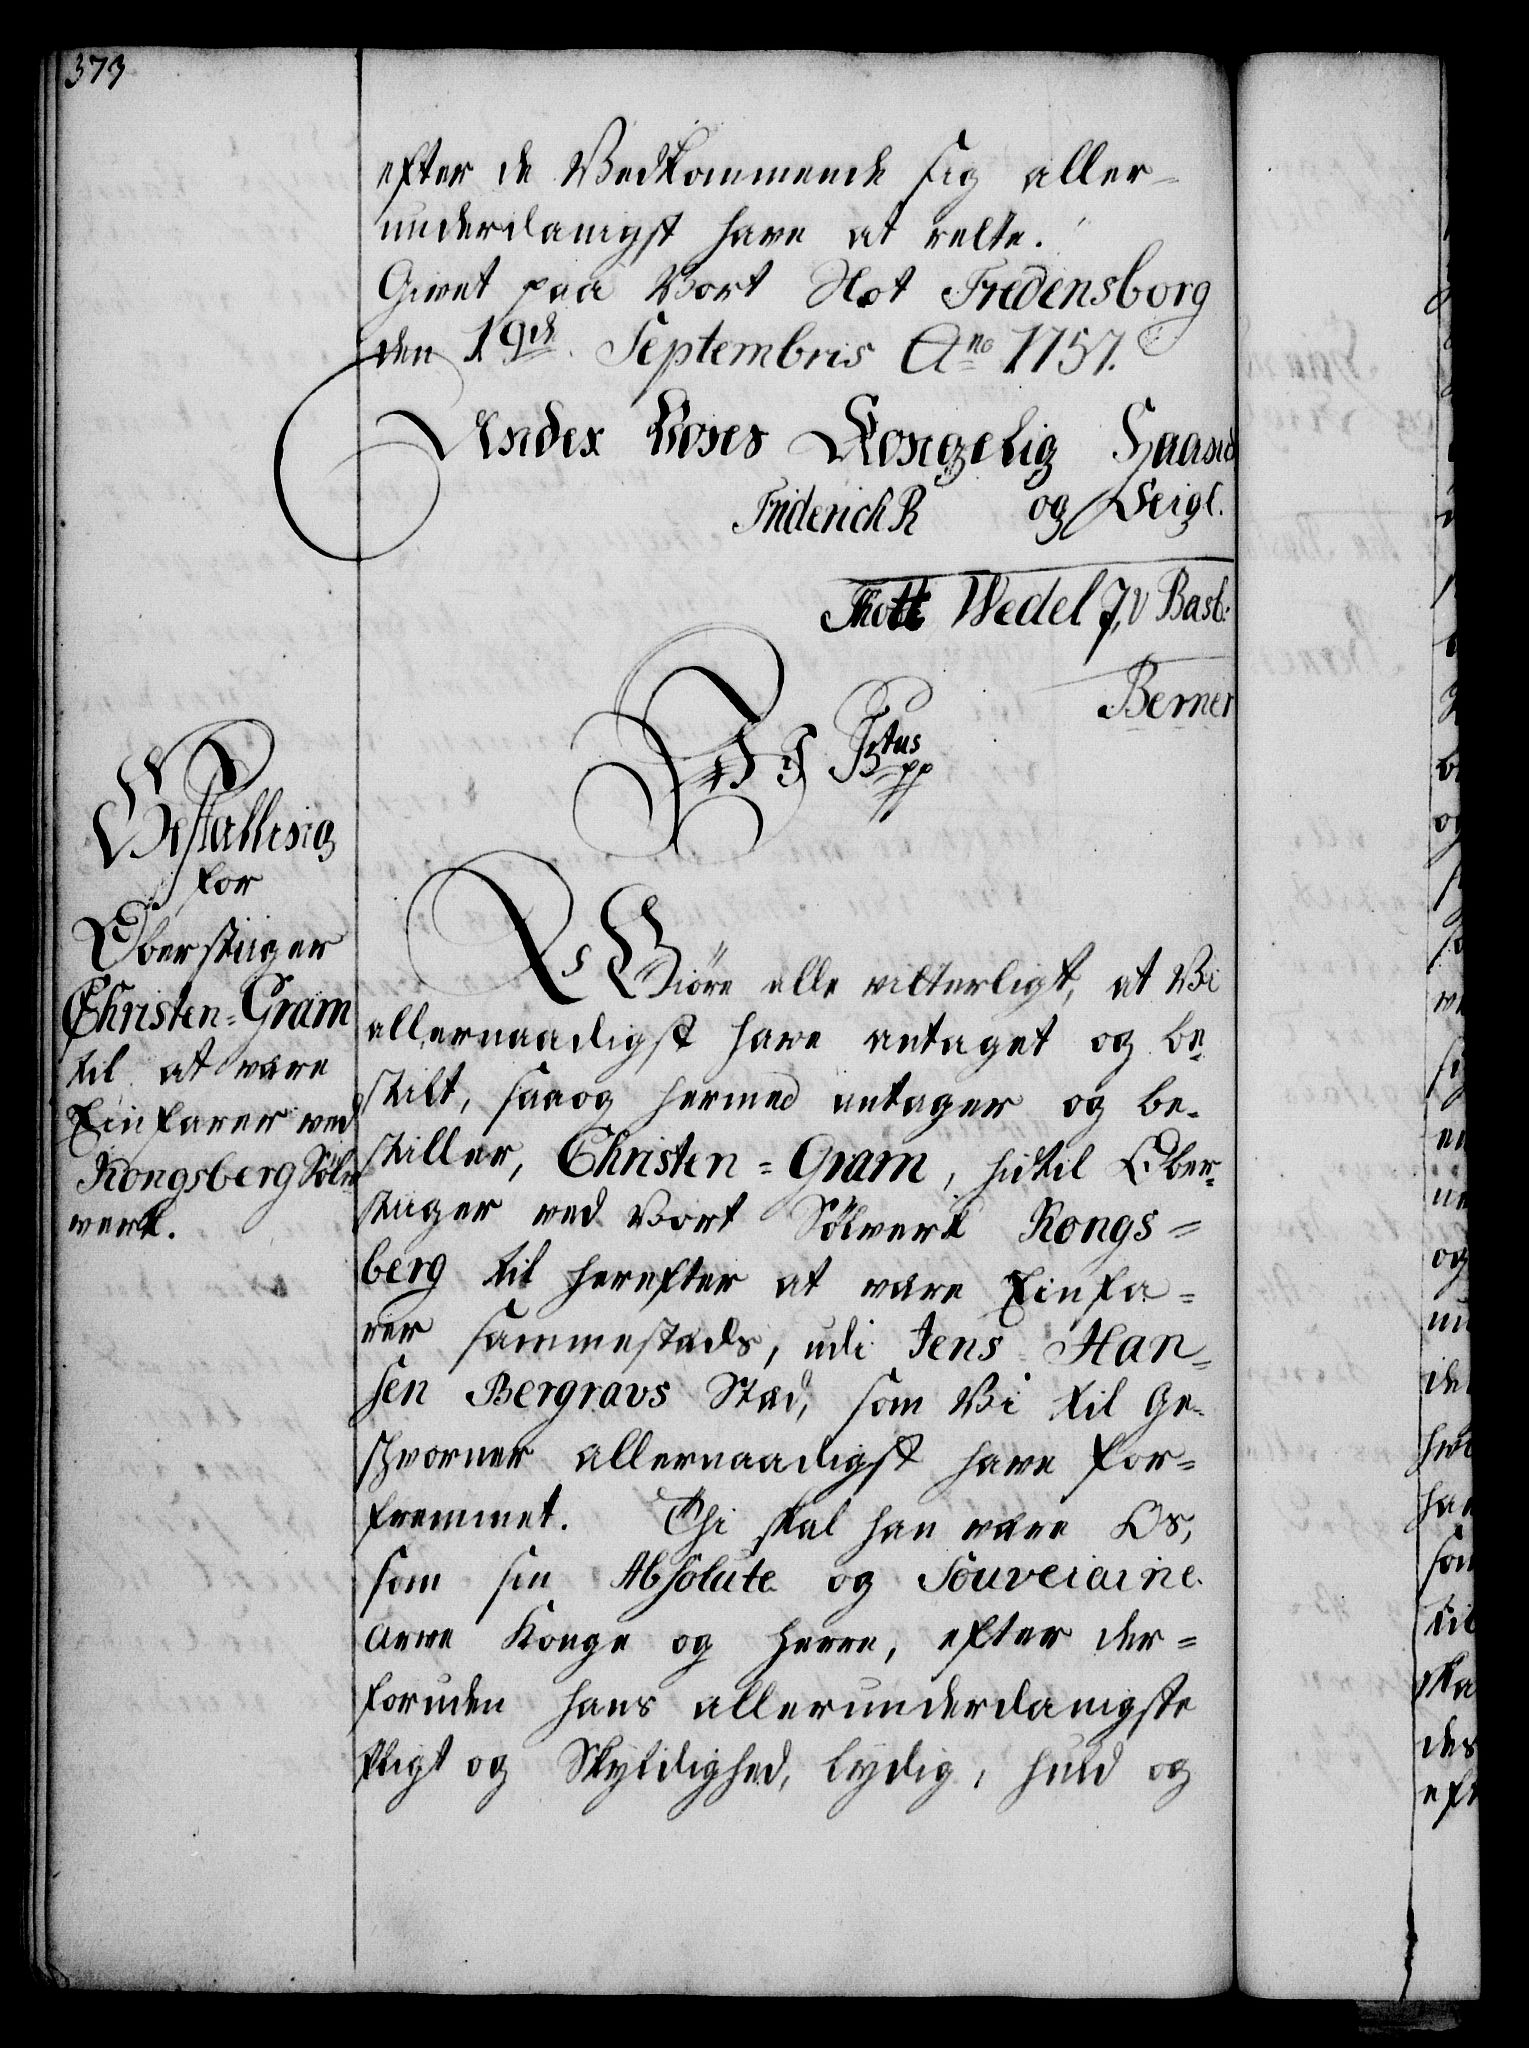 373
efter de Vedkommende sig aller-
underdanigst have at rette.
Givet paa Vort Slot Fredensborg
den 19de Septembris Ano 1757.
Under Vores Kongelig Haand
Friderich R og Seigl.
Thott Wedel J, V Bast:
Berner
F 5 Titus pp
Bestalling
for
Oberstiiger
Christen=Gram
til at være
Einfarer ved
Kongsberg Sölv
werk.
Vs Giöre alle vitterligt, at Vi
allernaadigst have antaget og be-
stilt, saaog hermed antager og be-
stiller, Christen=Gram, hidtil Ober-
stiiger ved Vort Sölverk Kongs=
berg til herefter at være Einfa=
rer sammestæds, udi Jens Han=
sen Bergravs Stæd, som Vi til Ge-
schvorner allernaadigst have for=
fremmet. Thi skal han være Os,
som sin Absolute og Souveraine
Arve Konge og Herre, efter der=
foruden hans allerunderdanigste
Pligt og Skyldighed, lydig, huld og